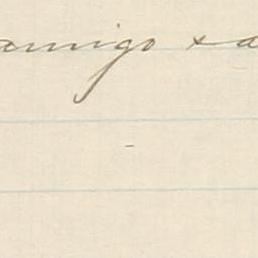 amigo x a